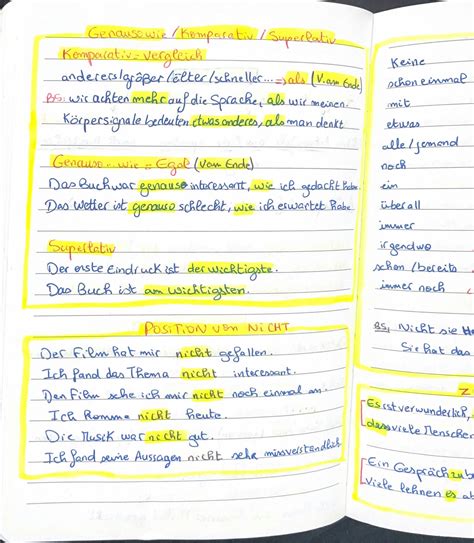 Genauso wie / Komparativ / Superlativ
Komparativ = Vergleich
anderers/größer/älter/schneller... → als (V. am Ende)
BS: wir achten mehr auf die Sprache, als wir meinen.
Körpersignale bedeuten etwas anderes, als man denkt
Genauso - wie = Egal (V am Ende)
Das Buch war genauso interessant, wie ich gedacht habe.
Das Wetter ist genauso schlecht, wie ich erwartet habe.
Superlativ
Der erste Eindruck ist der wichtigste.
Das Buch ist am wichtigsten.
Position von NICHT
Der Film hat mir nicht gefallen.
Ich fand das Thema nicht interessant.
Den Film sehe ich mir nicht noch einmal an.
Ich komme nicht heute.
Die Musik war nicht gut.
Ich fand seine Aussagen nicht sehr missverständlich
Keine
schon einmal
mit
etwas
alle/jemand
noch
ein
überall
immer
irgendwo
schon/bereits
immer noch
BS, Nicht sie
Sie hat das
Es ist verwunderlich,
dass viele Menschen
Ein Gespräch zu
viele lehnen es